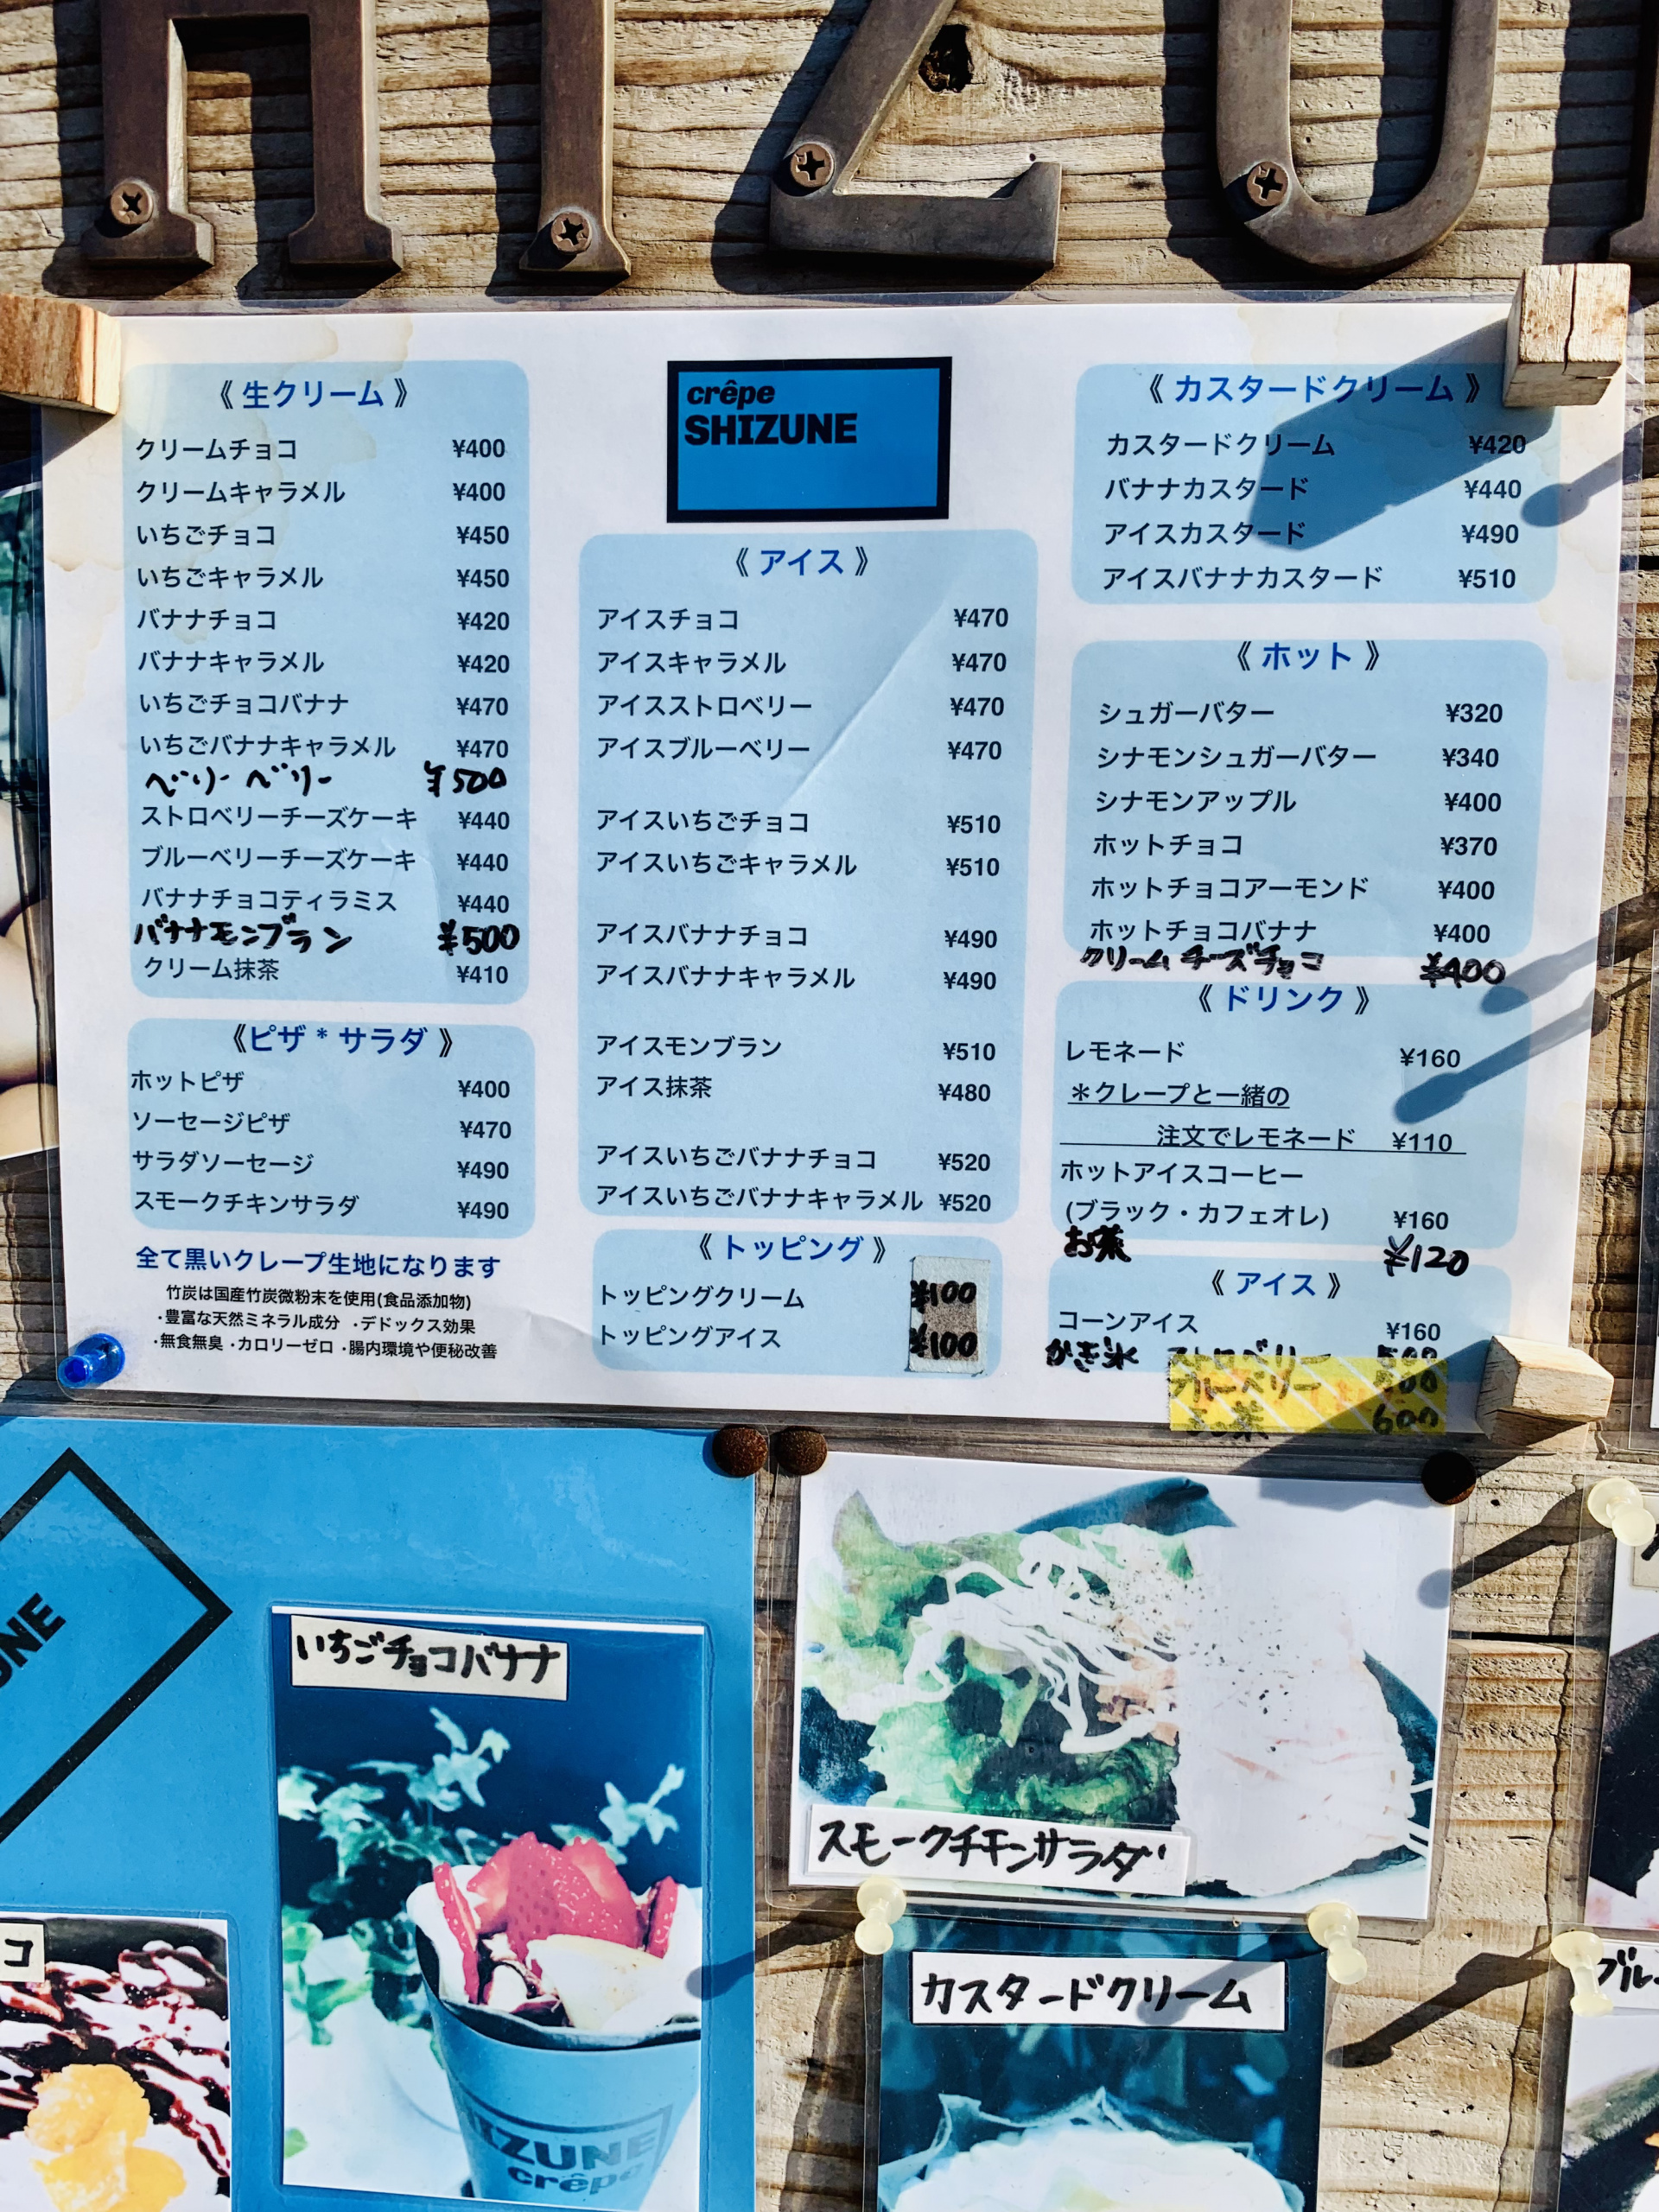 HIZU
《 生クリーム 》
クリームチョコ ¥400
クリームキャラメル ¥400
いちごチョコ ¥450
いちごキャラメル ¥450
バナナチョコ ¥420
バナナキャラメル ¥420
いちごチョコバナナ ¥470
いちごバナナキャラメル ¥470
ベリーベリー ¥500
ストロベリーチーズケーキ ¥440
ブルーベリーチーズケーキ ¥440
バナナチョコティラミス ¥440
バナナモンブラン ¥500
クリーム抹茶 ¥410
《ピザ * サラダ 》
ホットピザ ¥400
ソーセージピザ ¥470
サラダソーセージ ¥490
スモークチキンサラダ ¥490
全て黒いクレープ生地になります
竹炭は国産竹炭微粉末を使用(食品添加物)
・豊富な天然ミネラル成分 ・デドックス効果
・無食無臭 ・カロリーゼロ ・腸内環境や便秘改善
crêpe
SHIZUNE
《 アイス 》
アイスチョコ ¥470
アイスキャラメル ¥470
アイスストロベリー ¥470
アイスブルーベリー ¥470
アイスいちごチョコ ¥510
アイスいちごキャラメル ¥510
アイスバナナチョコ ¥490
アイスバナナキャラメル ¥490
アイスモンブラン ¥510
アイス抹茶 ¥480
アイスいちごバナナチョコ ¥520
アイスいちごバナナキャラメル ¥520
《 トッピング 》
トッピングクリーム ¥100
トッピングアイス ¥100
《 カスタードクリーム 》
カスタードクリーム ¥420
バナナカスタード ¥440
アイスカスタード ¥490
アイスバナナカスタード ¥510
《 ホット 》
シュガーバター ¥320
シナモンシュガーバター ¥340
シナモンアップル ¥400
ホットチョコ ¥370
ホットチョコアーモンド ¥400
ホットチョコバナナ ¥400
クリームチーズチョコ ¥400
《 ドリンク 》
レモネード ¥160
＊クレープと一緒の
注文でレモネード ¥110
ホットアイスコーヒー
(ブラック・カフェオレ) ¥160
お茶 ¥120
《 アイス 》
コーンアイス ¥160
かき氷 ストロベリー 500
ブルーベリー 500
600
UNE
いちごチョコバナナ
IZUNE
crêpe
スモークチキンサラダ
カスタードクリーム
コ
ブル